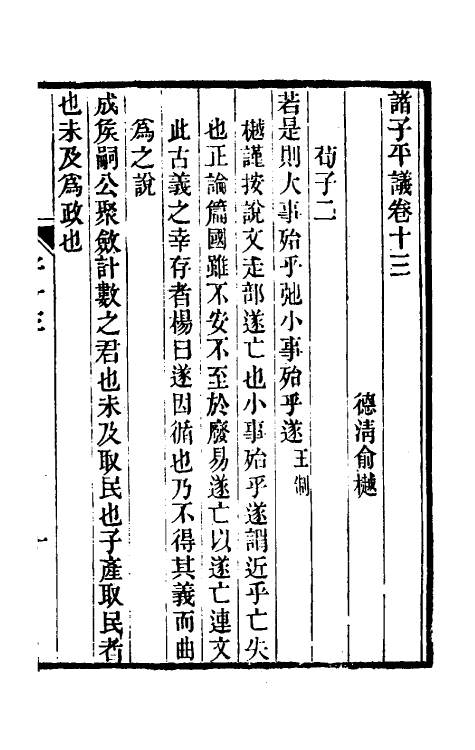 諸子平議卷十三
德淸俞樾
荀子二
若是則大事殆乎弛小事殆乎遂王制
樾謹按說文辵部遂亡也小事殆乎遂謂近乎亡失
也正論篇國雖不安不至於廢易遂亡以遂亡連文
此古義之幸存者楊曰遂因循也乃不得其義而曲
爲之說
成矦嗣公聚斂計數之君也未及取民也子產取民者
也未及爲政也